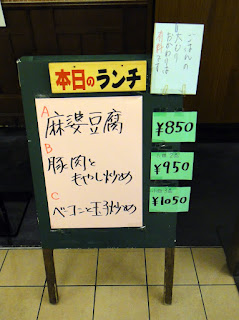 本日のランチ
A
麻婆豆腐
B
豚肉と
もやし炒め
C
ベーコンと玉子炒め
ごはんの
大もり
おかわりは
有料です
¥850
¥950
¥1050